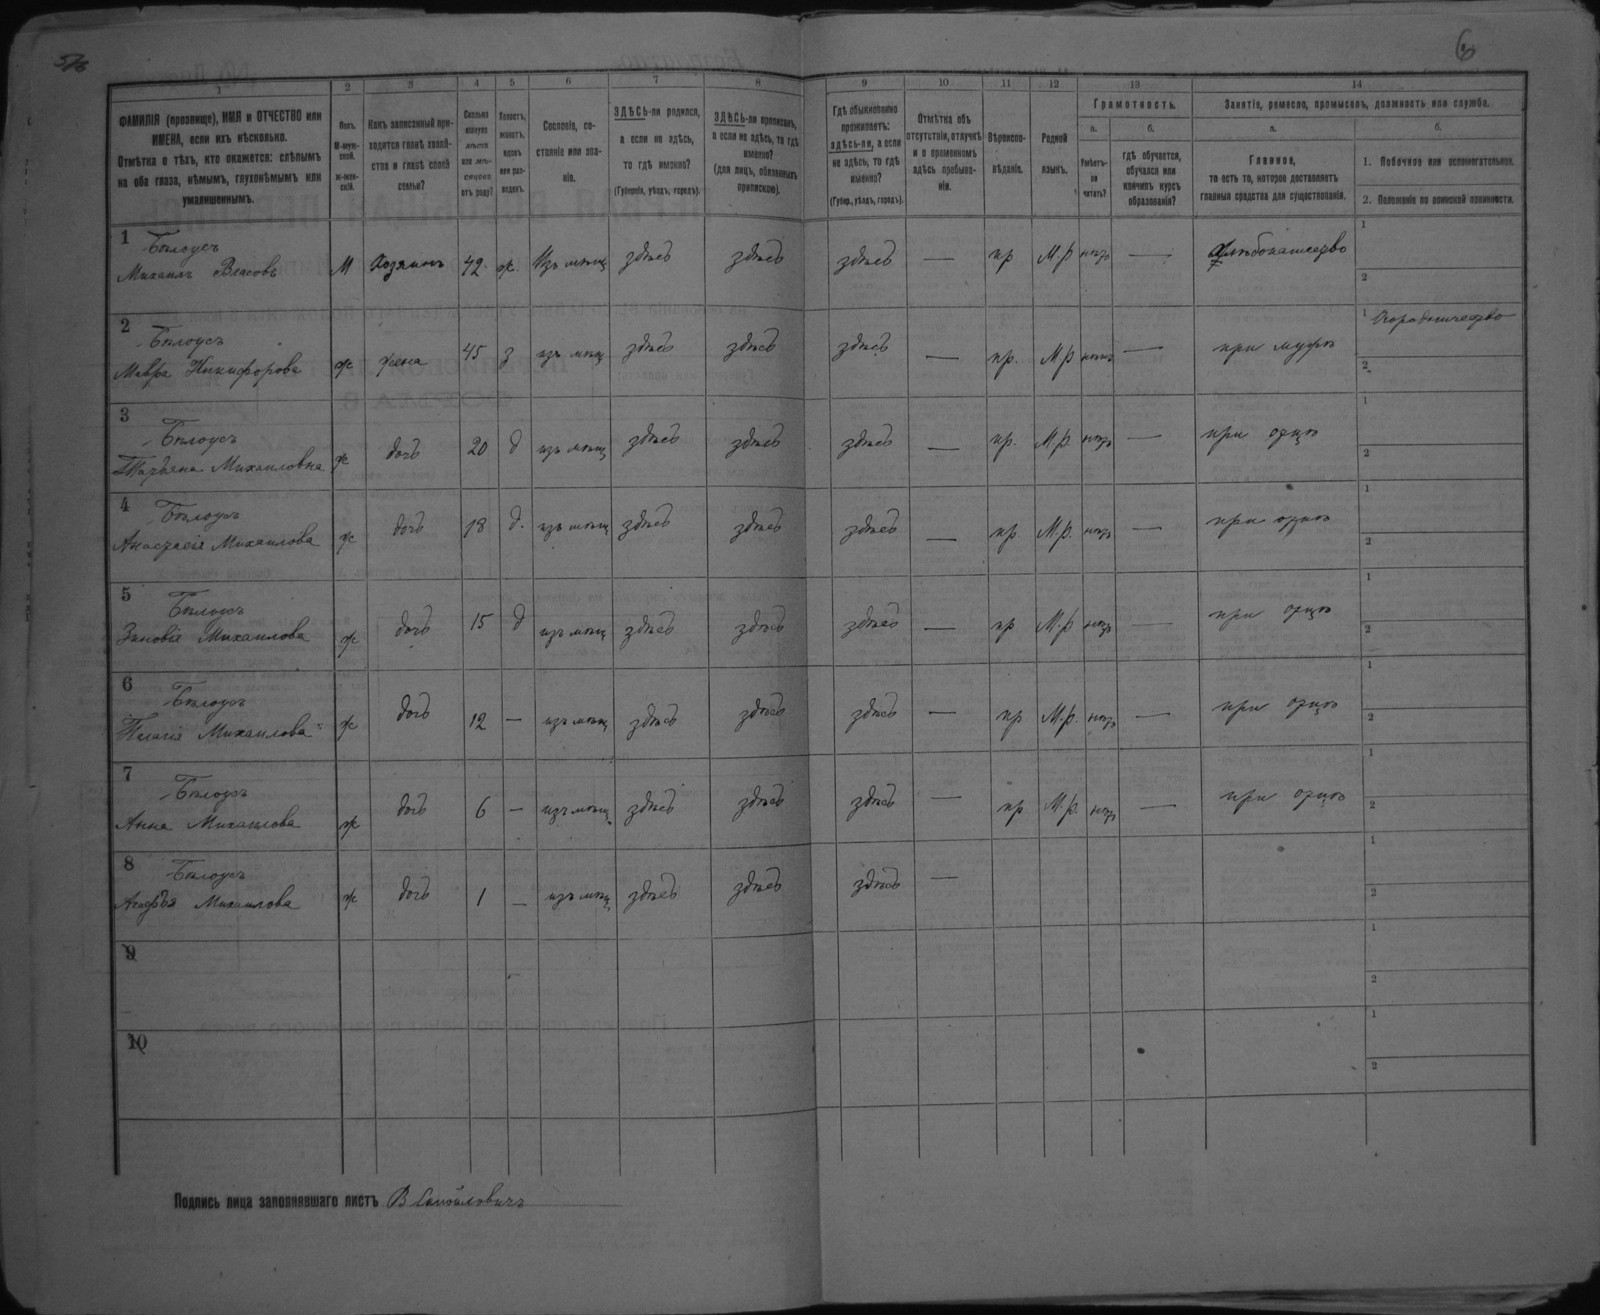 6
1 2 3 4 5 6 7 8 9 10 11 12 13 14
ФАМИЛІЯ (прозвище), ИМЯ и ОТЧЕСТВО или
ИМЕНА, если ихъ нѣсколько.
Отмѣтка о тѣхъ, кто окажется: слѣпымъ
на оба глаза, нѣмымъ, глухонѣмымъ или
умалишеннымъ.
Полъ.
М-муж-
ской.
Ж-жен-
скій.
Какъ записанный при-
ходится главѣ хозяй-
ства и главѣ своей
семьи?
Сколько
минуло
лѣтъ
или мѣ-
сяцевъ
отъ роду?
Холостъ,
женатъ,
вдовъ
или раз-
веденъ.
Сословіе, со-
стояніе или зва-
ніе.
ЗДѢСЬ-ли родился,
а если не здѣсь,
то гдѣ именно?
(Губернія, уѣздъ, городъ).
ЗДѢСЬ-ли приписанъ,
а если не здѣсь, то гдѣ
именно?
(для лицъ, обязанныхъ
припискою).
Гдѣ обыкновенно
проживаетъ:
здѣсь-ли, а если
не здѣсь, то гдѣ
именно?
(Губер., уѣздъ, городъ).
Отмѣтка объ
отсутствіи, отлучкѣ
и о временномъ
здѣсь пребыва-
ніи.
Вѣроиспо-
вѣданіе.
Родной
языкъ.
Грамотность.
а. б.
Умѣетъ-
ли
читать?
гдѣ обучается,
обучался или
кончилъ курсъ
образованія?
Занятіе, ремесло, промыселъ, должность или служба.
а. б.
Главное,
то есть то, которое доставляетъ
главныя средства для существованія.
1. Побочное или вспомогательное.
2. Положеніе по воинской повинности.
1 Бѣлоусъ
Михаилъ Власовъ М Хозяинъ 42 ж. Изъ мѣщ здѣсь здѣсь здѣсь — пр М.р нѣтъ — хлѣбопашество 1
2
2 Бѣлоусъ
Мавра Никифорова ж жена 45 з изъ мѣщ здѣсь здѣсь здѣсь — пр. М.р нѣтъ — при мужѣ 1 Огородничество
2
3 Бѣлоусъ
Татьяна Михаиловна ж дочь 20 д изъ мѣщ здѣсь здѣсь здѣсь — пр. М.р. нѣтъ — при отцѣ 1
2
4 Бѣлоусъ
Анастасія Михаилова ж дочь 18 д. изъ мѣщ здѣсь здѣсь здѣсь — пр М.р. нѣтъ — при отцѣ 1
2
5 Бѣлоусъ
Зиновія Михаилова ж дочь 15 д изъ мѣщ здѣсь здѣсь здѣсь — пр М.р нѣтъ — при отцѣ 1
2
6 Бѣлоусъ
Пелагія Михаилова ж дочь 12 — изъ мѣщ здѣсь здѣсь здѣсь — пр М.р. нѣтъ — при отцѣ 1
2
7 Бѣлоусъ
Анна Михаилова ж дочь 6 — изъ мѣщ. здѣсь здѣсь здѣсь — пр М.р. нѣтъ — при отцѣ 1
2
8 Бѣлоусъ
Агафья Михаилова ж дочь 1 — изъ мѣщ. здѣсь здѣсь здѣсь — 1
2
9 1
2
10 1
2
Подпись лица заполнявшаго листъ В Самойловичъ